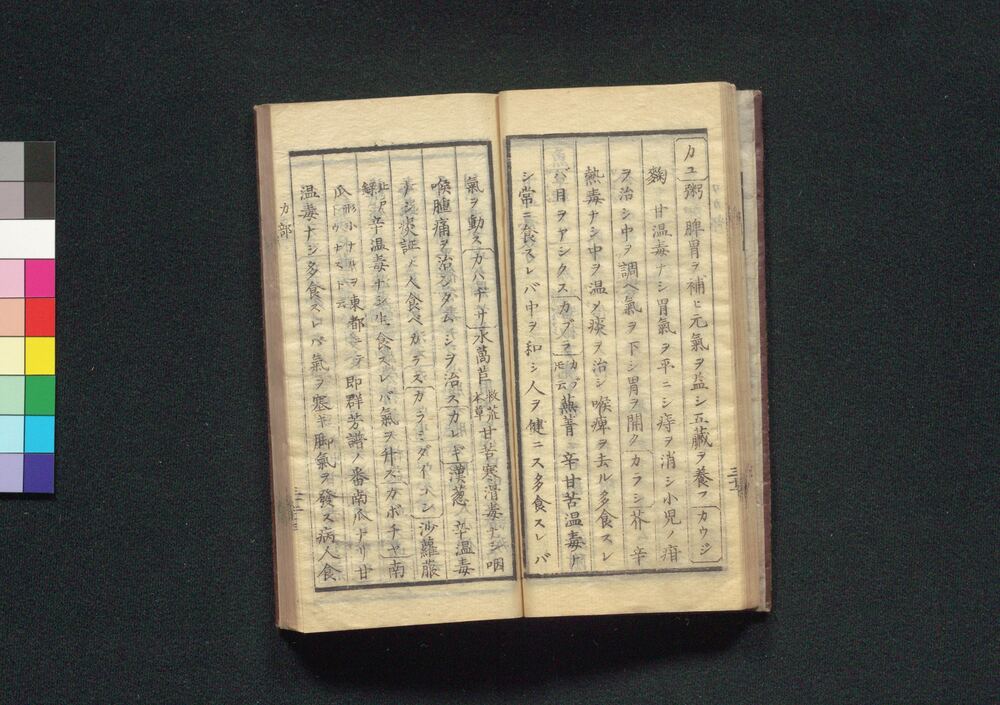 カユ 粥 脾胃ヲ補ヒ元氣ヲ益シ五臟ヲ養フ カウジ
麹 甘温毒ナシ胃氣ヲ平ニシ痔ヲ消シ小児ノ疳
ヲ治シ中ヲ調ヘ氣ヲ下シ胃ヲ開ク カラシ 芥 辛
熱毒ナシ中ヲ温メ痰ヲ治シ喉痺ヲ去ル多食スレ
バ目ヲアシクス カブラ カブ氏云 蕪菁 辛甘苦温毒ナ
シ常ニ食スレバ中ヲ和シ人ヲ健ニス多食スレバ
氣ヲ動ス カハヂサ 水萵苣 救荒本草 甘苦寒滑毒ナシ咽
喉腫痛ヲ治シダムシヲ治ス カレギ 漢葱 辛温毒
ナシ痰証ノ人食ベカラズ カラミダイコン 沙蘿蔔
辛温毒ナシ生食スレバ氣ヲ升ス カボチヤ 南
瓜 形小ナルヲ東都ニテトウナスト云 即群芳譜ノ番南瓜ナリ甘
温毒ナシ多食スレバ氣ヲ塞ギ脚氣ヲ發ス病人食
カ部